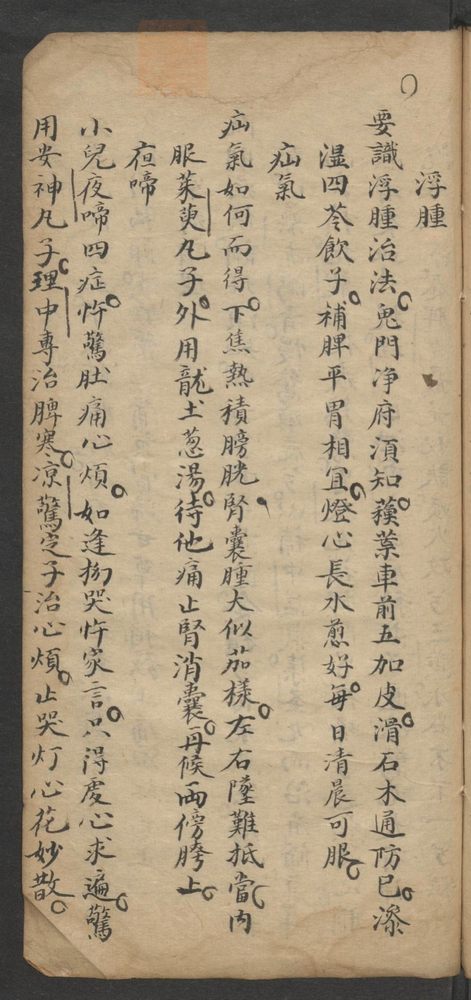 浮腫
要識浮腫治法。鬼門净府須知。蘋葉車前五加皮。滑石木通防巳。滲
湿四苓飲子。補脾平胃相宜。燈心長水煎好。每日清晨可服。
疝氣
疝氣如何而得。下焦熱積膀胱。腎囊腫大似茄樣。左右墜難抵當。内
服茱萸丸子。外用龍土葱湯。待他痛止腎消囊。再候両傍胯上。
夜啼
小兒夜啼四症。忤驚肚痛心煩。如逢拗哭忤家言。只得虔心求遍。驚
用安神丸子。理中專治脾寒。凉驚定子治心煩。止哭灯心花妙散。